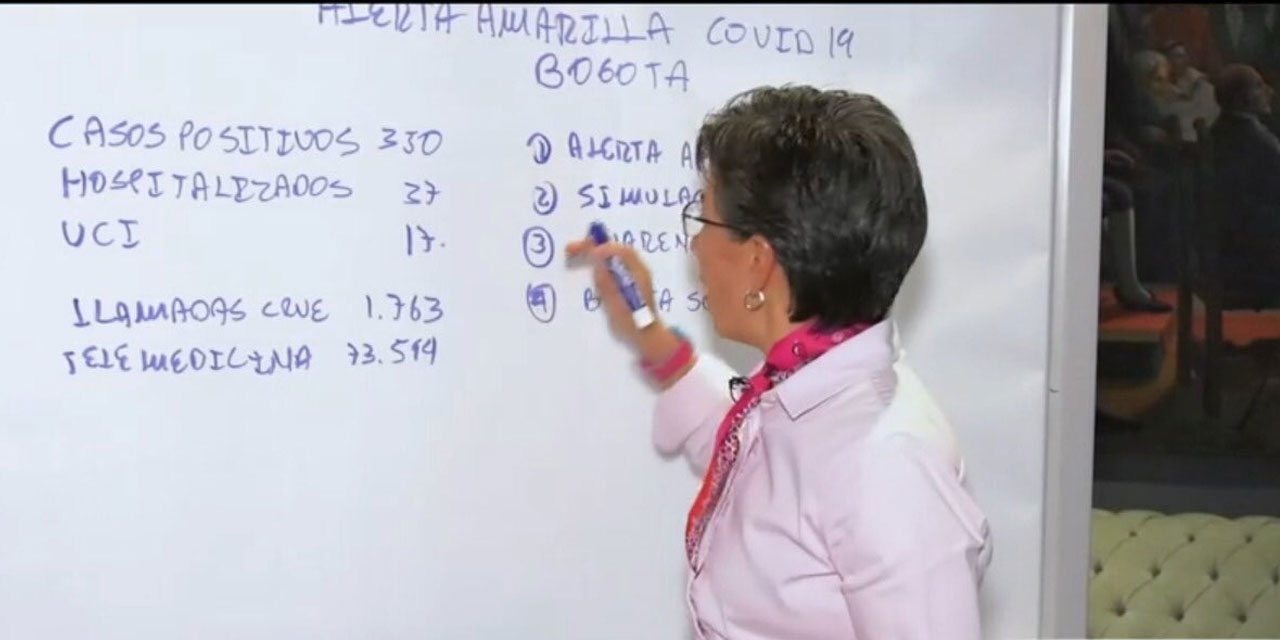 ALERTA AMARILLA COVID 19
BOGOTA
CASOS POSITIVOS 350
HOSPITALIZADOS 37
UCI 17.
LLAMADAS CRUE 1.763
TELEMEDICINA 73.514
① ALERTA A
② SIMULAC
③ ARENC
④